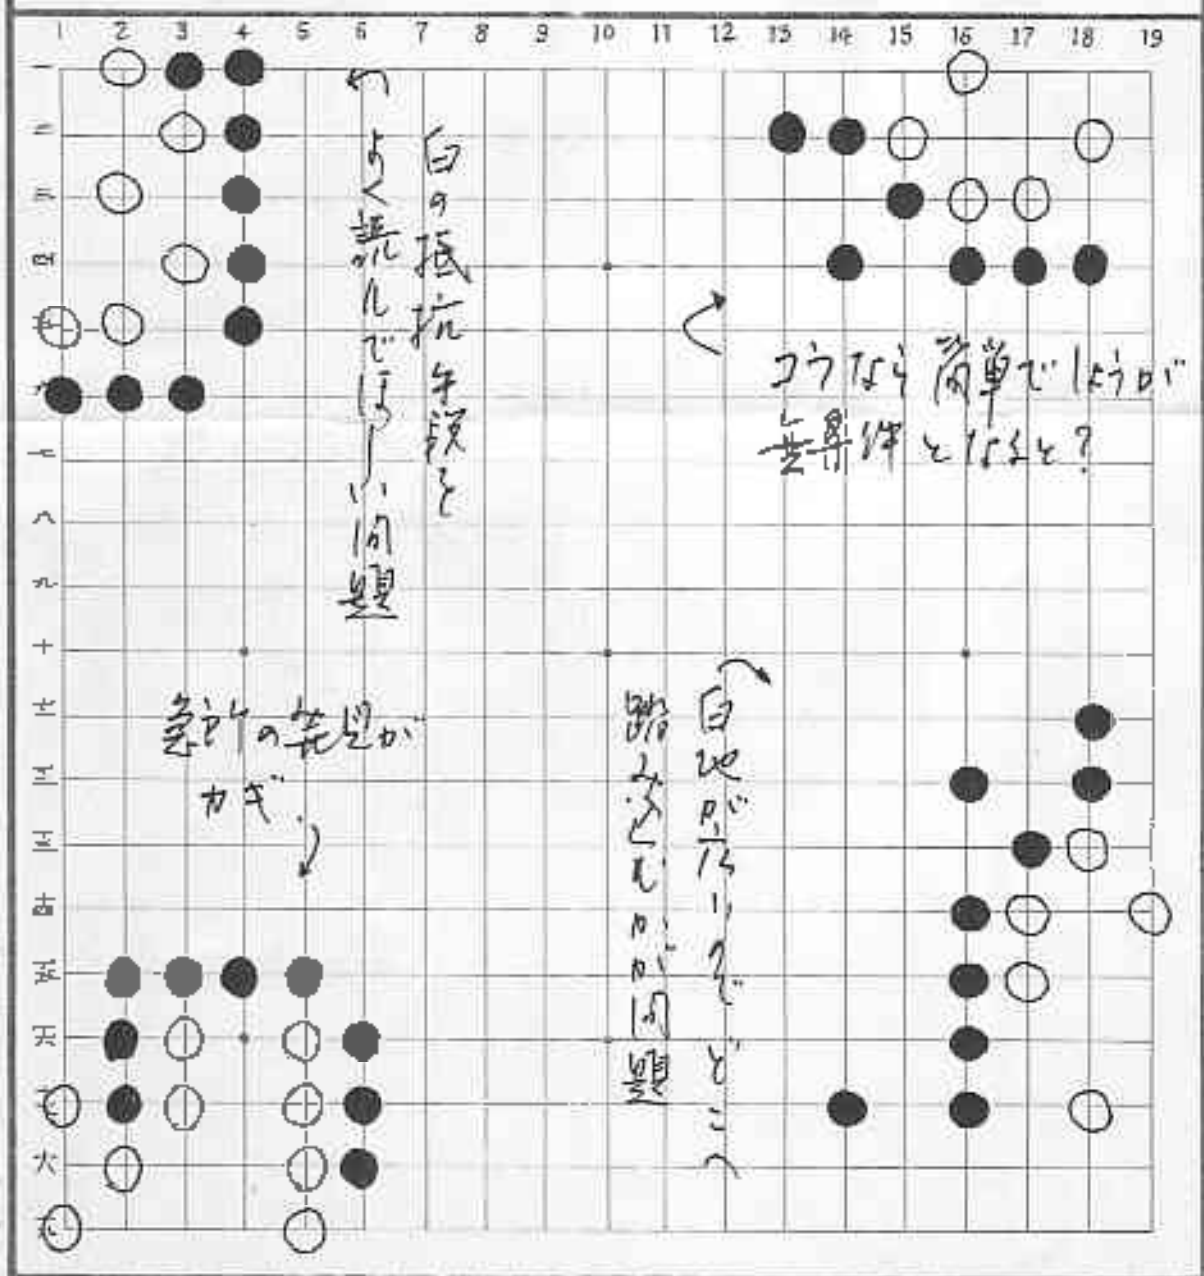 1 2 3 4 5 6 7 8 9 10 11 12 13 14 15 16 17 18 19
一
二
三
四
五
六
七
八
九
十
十一
十二
十三
十四
十五
十六
十七
十八
十九
白の抵抗手段を
よく読んでほしい問題
コウなら簡単でしょうが
無条件となると?
急所の発見が
カギ
白地が広いのでどこへ
踏み込むかが問題